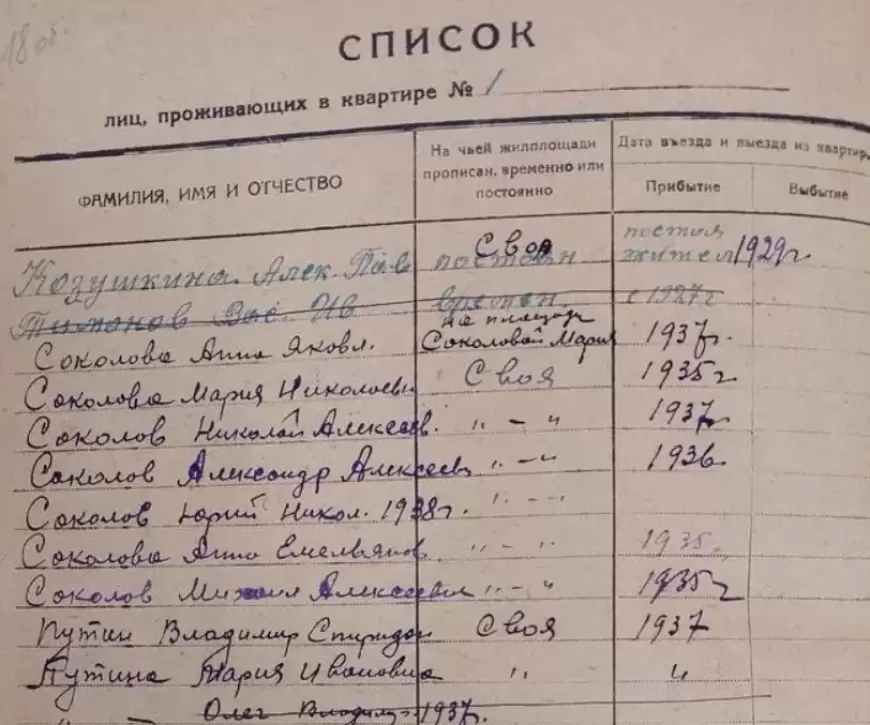 18 об.
СПИСОК
лиц, проживающих в квартире № 1
ФАМИЛИЯ, ИМЯ И ОТЧЕСТВО
На чьей жилплощади прописан, временно или постоянно
Дата въезда и выезда из квартир
Прибытие
Выбытие
Козушкина Алек. Пав Своя постоян постоя жител 1929г.
Тимонов Вас. Ив времен. с 1927г
Соколова Анна Яковл. на площади Соколовой Мария 1937г.
Соколова Мария Николаевн Своя 1935г
Соколов Николай Алексеев. " – " 1937г
Соколов Александр Алексеев " – " 1936.
Соколов Юрий Никол. 1938г. " – "
Соколова Анна Емельянов. " – " 1935.
Соколов Михаил Алексеевич " – " 1935г
Путин Владимир Спиридон Своя 1937
Путина Мария Ивановна " "
" Олег Владим 1937.